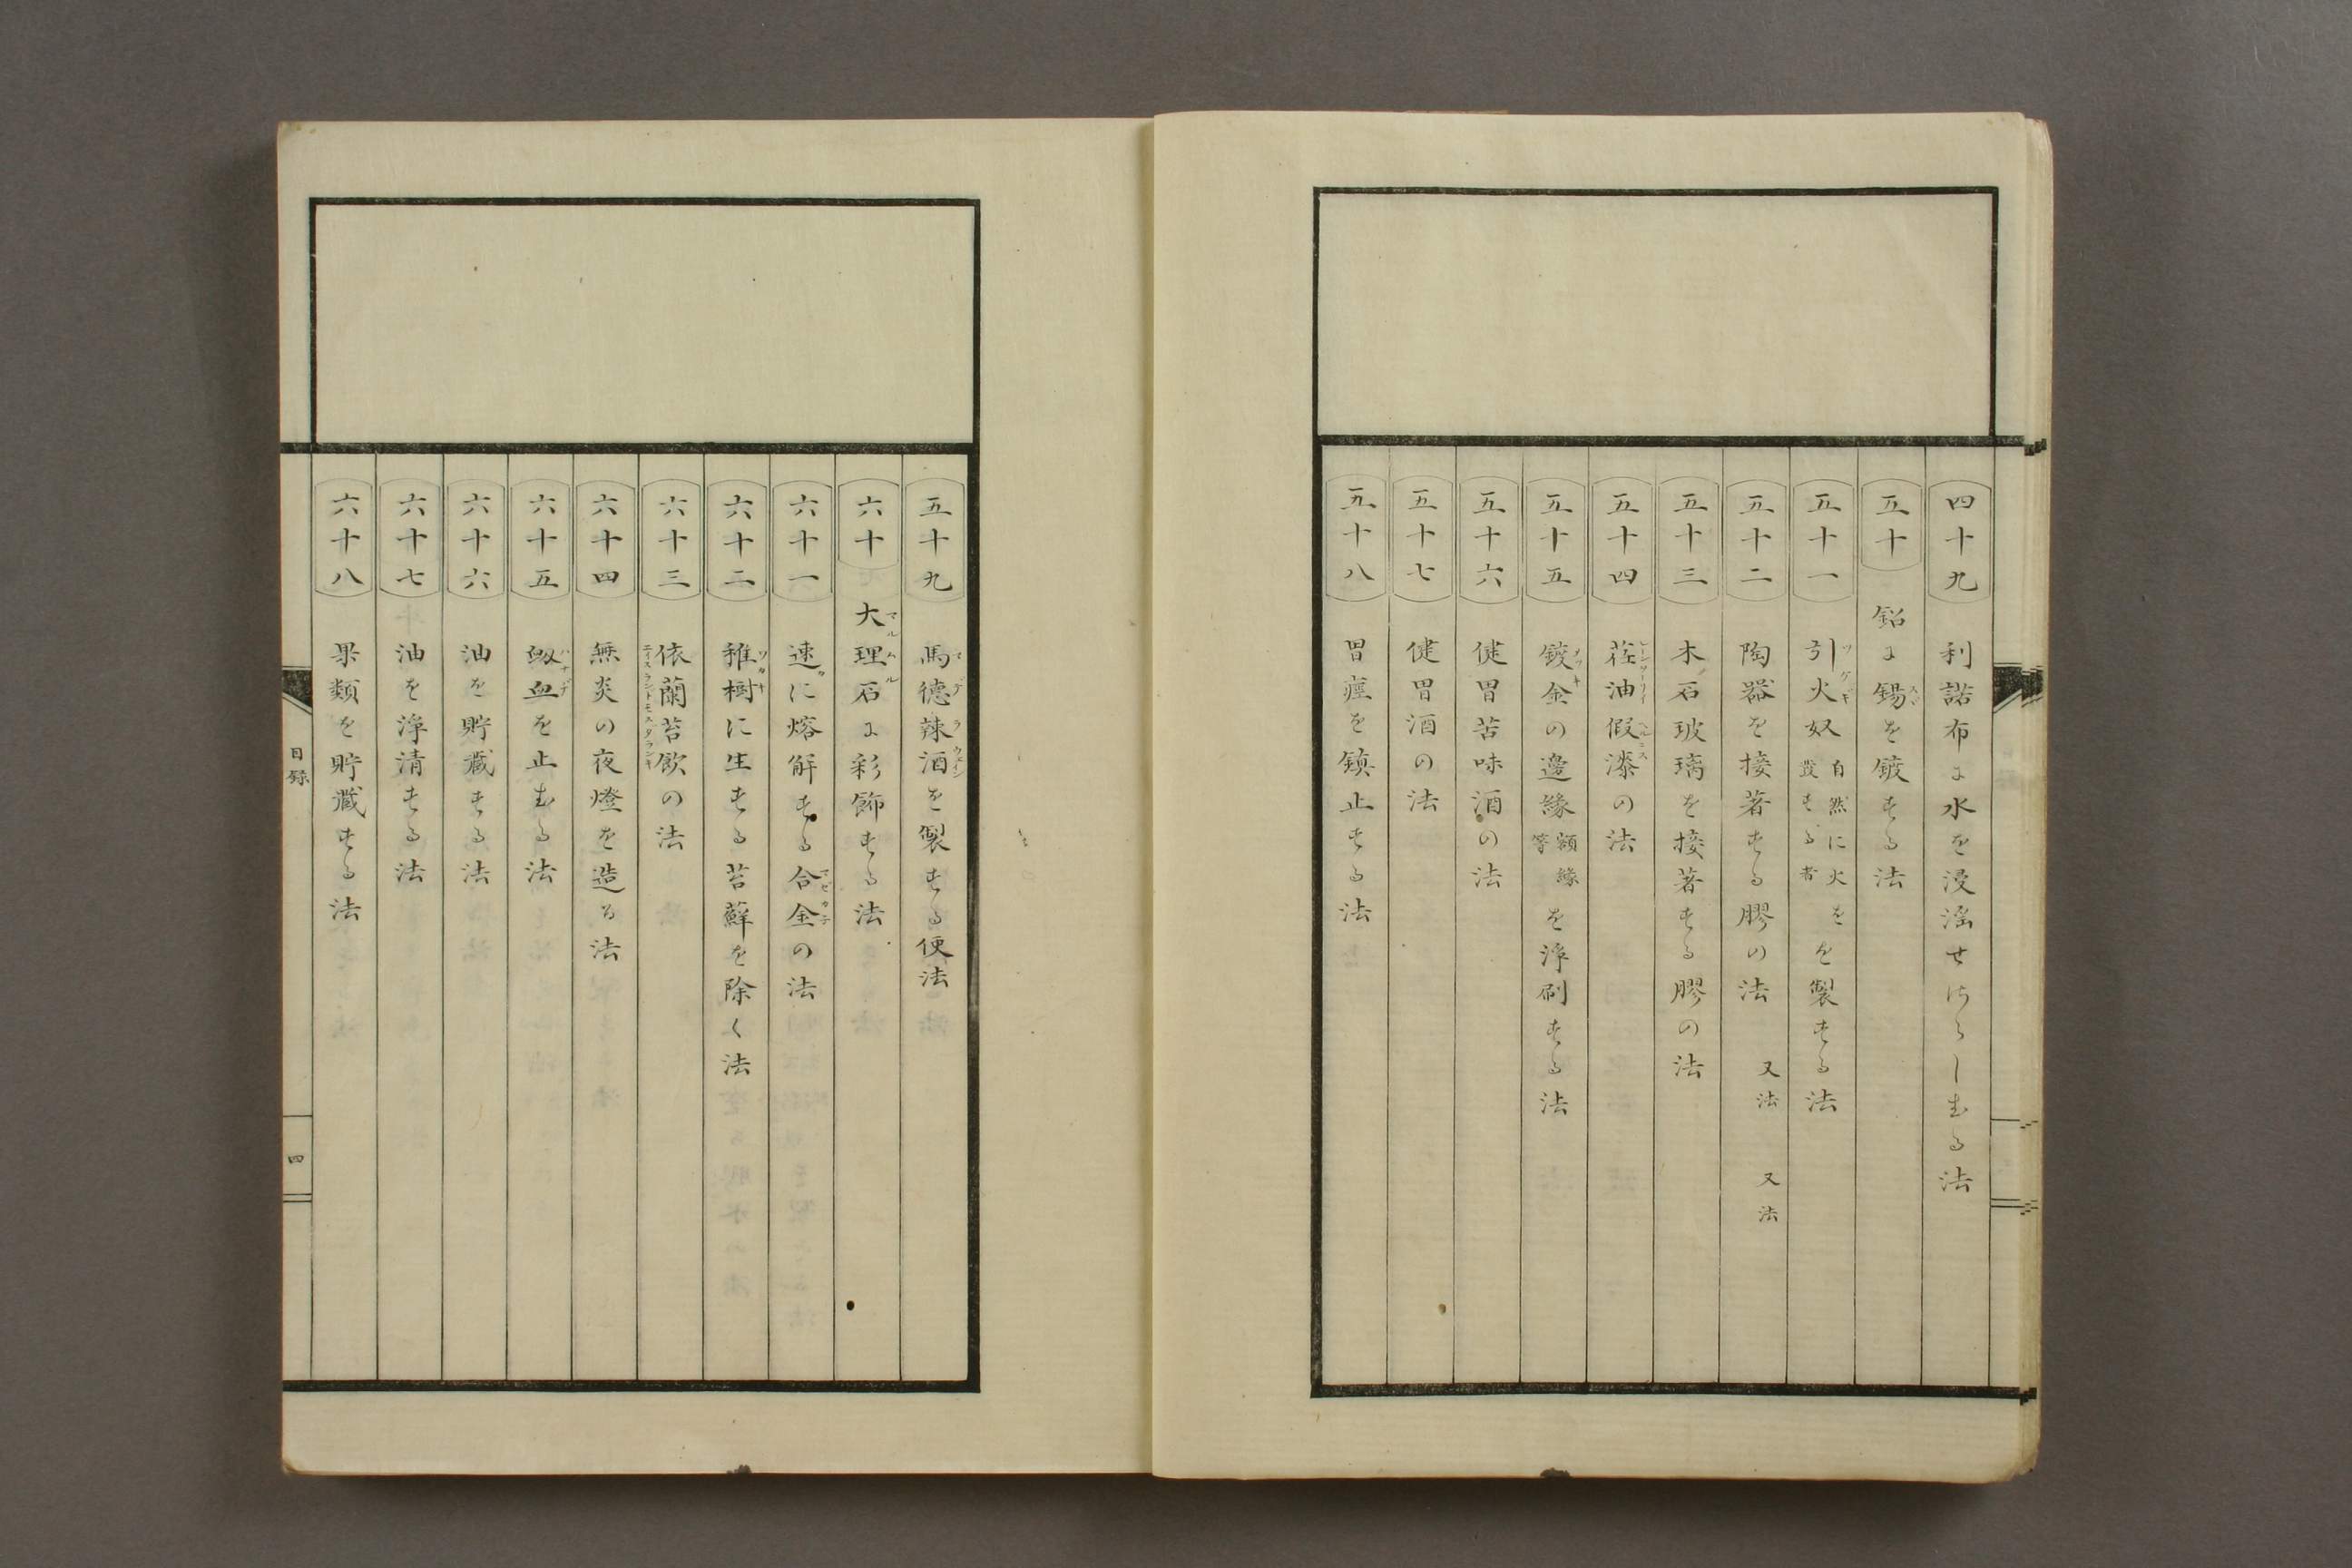 四十九 利諾布に水を浸淫せざらしむる法
五十 鉛に錫を鍍する法
五十一 引火奴 自然に火を発する者 を製する法
五十二 陶器を接著する膠の法 又法 又法
五十三 木石玻璃を接著する膠の法
五十四 荏油假漆の法
五十五 鍍金の邊緣 額緣等 を淨刷する法
五十六 健胃苦味酒の法
五十七 健胃酒の法
五十八 胃痙を鎮止する法
五十九 馬德辣酒を製する便法
六十 大理石に彩飾する法
六十一 速に熔解する合金の法
六十二 稚樹に生する苔蘚を除く法
六十三 依蘭苔飲の法
六十四 無炎の夜燈を造る法
六十五 衂血を止むる法
六十六 油を貯藏する法
六十七 油を淨清する法
六十八 果類を貯藏する法
目録
四